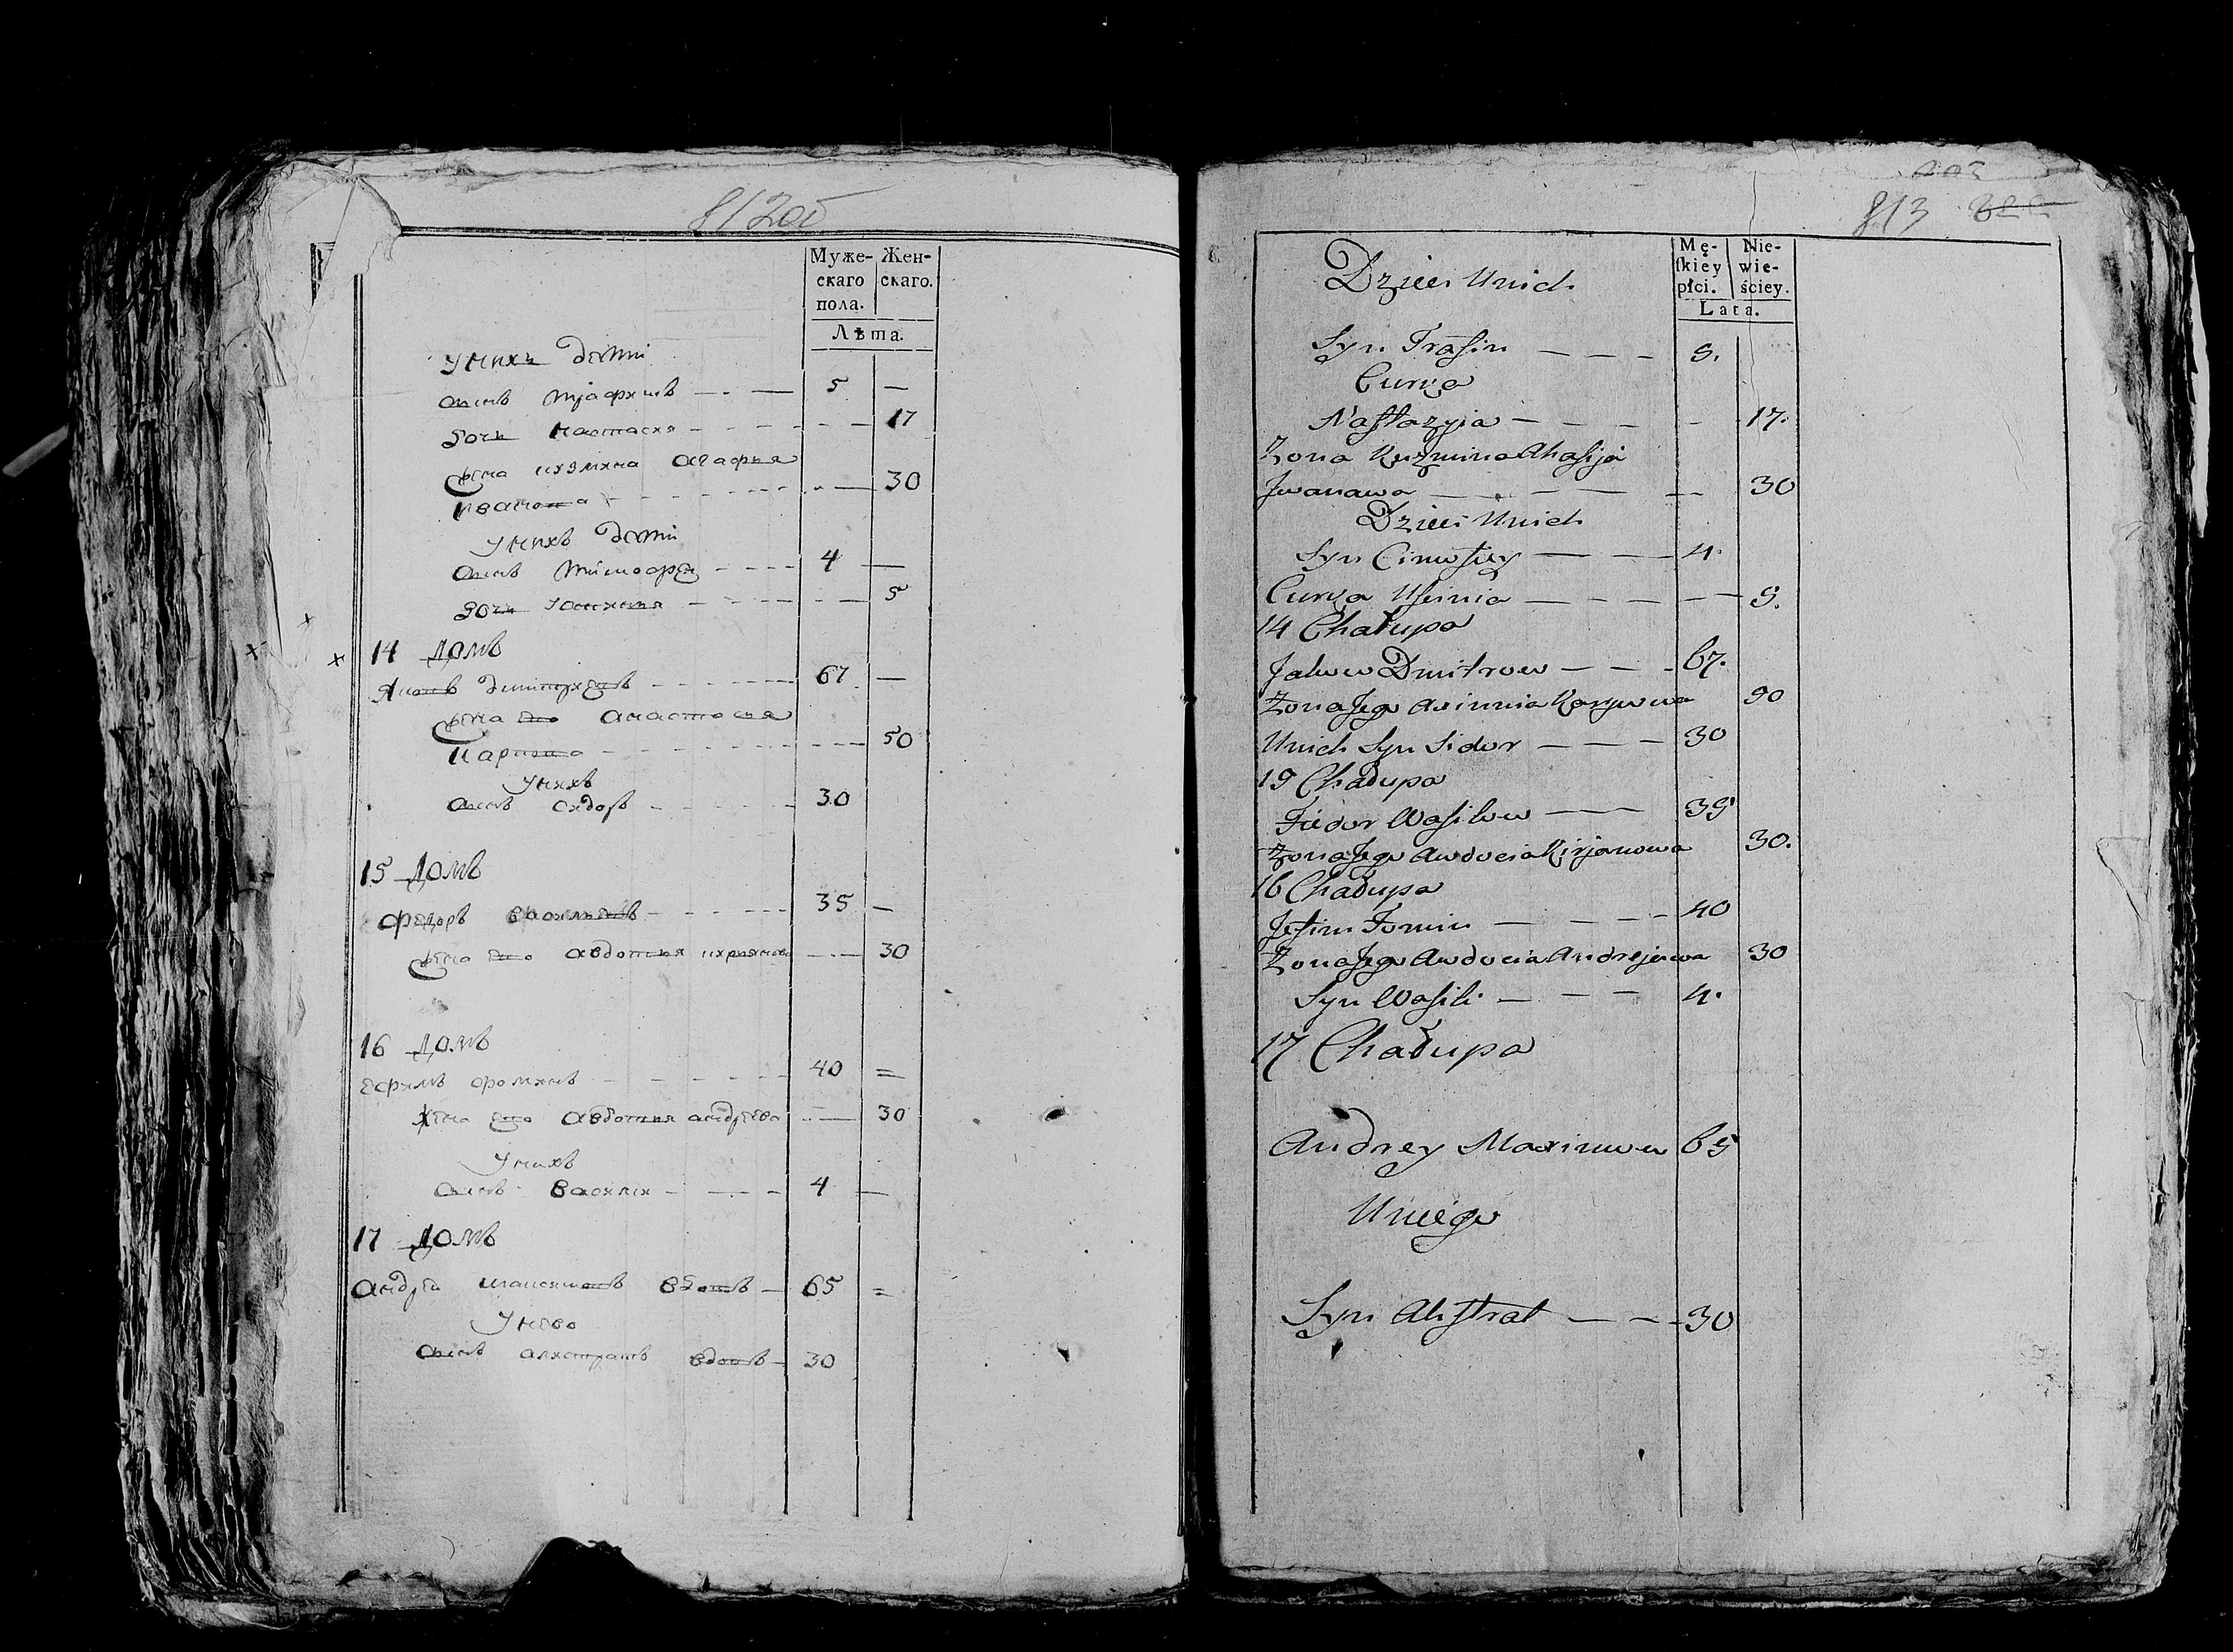 812об
Муже- Жен-
скаго скаго.
пола.
Лѣта.
У нихъ дѣти
сынъ трафимъ 5 —
дочь настасия — 17
жена кузмина агафия
иванова — 30
У нихъ дѣти
сынъ тимофеи 4 —
дочь — 5
14 домъ
Яковъ дмитриевъ 67 —
жена ево
карпова — 50
У нихъ
сынъ сидоръ 30
15 домъ
федоръ василевъ 35 —
жена ево авдотия кириянова — 30
16 домъ
ефимъ фоминъ 40 =
жена ево авдотия андреева — 30
У нихъ
сынъ василии 4 —
17 домъ
андреи максимовъ вдовъ — 65 =
У нево
сынъ алистратъ вдовъ — 30
813
Mę- Nie-
skiey wie-
płci. ściey.
Lata.
Dzieci Unich
Syn Trafim — — — 5.
Curka
Nastazyia — — — 17.
Zona Kuzmina Ahafija
Iwanawa — — — 30
Dzieci Unich
Syn Cimofiey — — 4.
Curka — — — 5.
14 Chałupa
Jakow Dmitrow — — — 67.
Zona Jego Karpowa 50
Unich Syn Sidor — — — 30
15 Chałupa
Fiedor Wasilow — — 35
Zona Jego Awdocia Kirjanowa 30.
16 Chałupa
Jefim Fomin — — — 40
Zona Jego Awdocia Andrejewa 30
Syn Wasili — — — 4.
17 Chałupa
Andrey Maximow 65
Uniego
Syn Alistrat — — 30